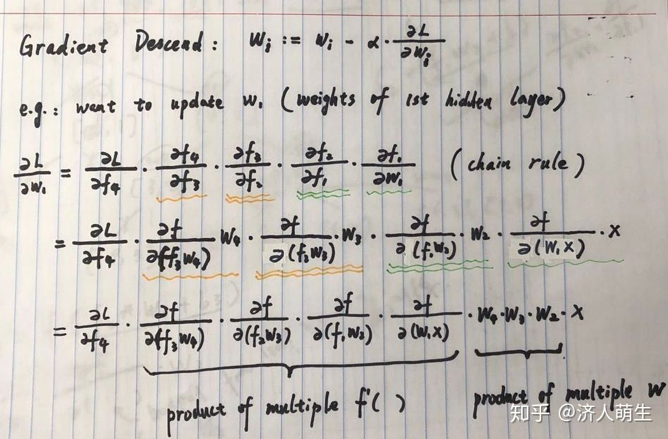 Gradient Descend: Wj := Wj - α · ∂L/∂Wj
e.g.: want to update W₁ (weights of 1st hidden layer)
∂L/∂W₁ = ∂L/∂f₄ · ∂f₄/∂f₃ · ∂f₃/∂f₂ · ∂f₂/∂f₁ · ∂f₁/∂W₁ (chain rule)
= ∂L/∂f₄ · ∂f/∂(f₃W₄) W₄ · ∂f/∂(f₂W₃) · W₃ · ∂f/∂(f₁W₂) · W₂ · ∂f/∂(W₁X) · X
= ∂L/∂f₄ · ∂f/∂(f₃W₄) · ∂f/∂(f₂W₃) · ∂f/∂(f₁W₂) · ∂f/∂(W₁X) · W₄ · W₃ · W₂ · X
product of multiple f'( ) product of multiple W
知乎 @济人萌生